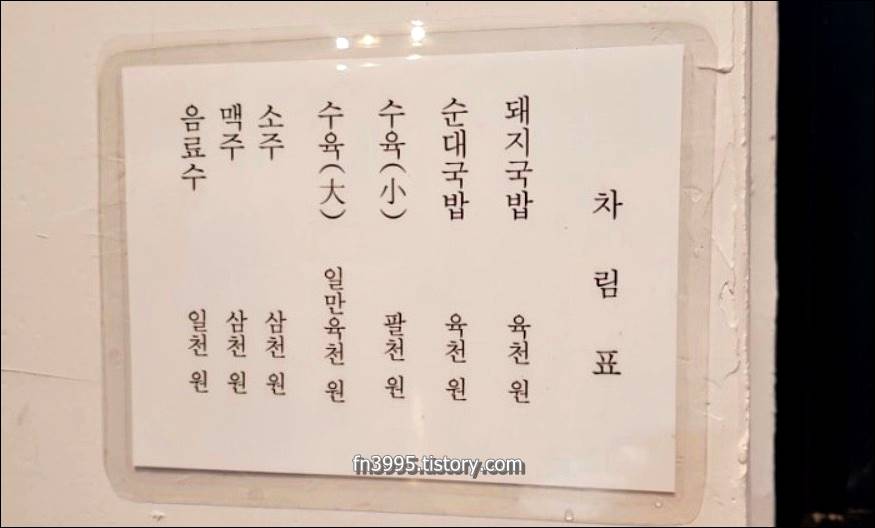 차림표
돼지국밥 육천 원
순대국밥 육천 원
수육(小) 팔천 원
수육(大) 일만육천 원
소주 삼천 원
맥주 삼천 원
음료수 일천 원
fn3995.tistory.com